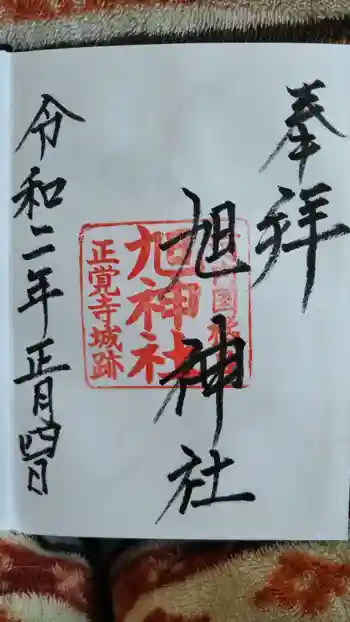 奉拝
旭神社
令和二年正月四日
旭神社
正覚寺城跡